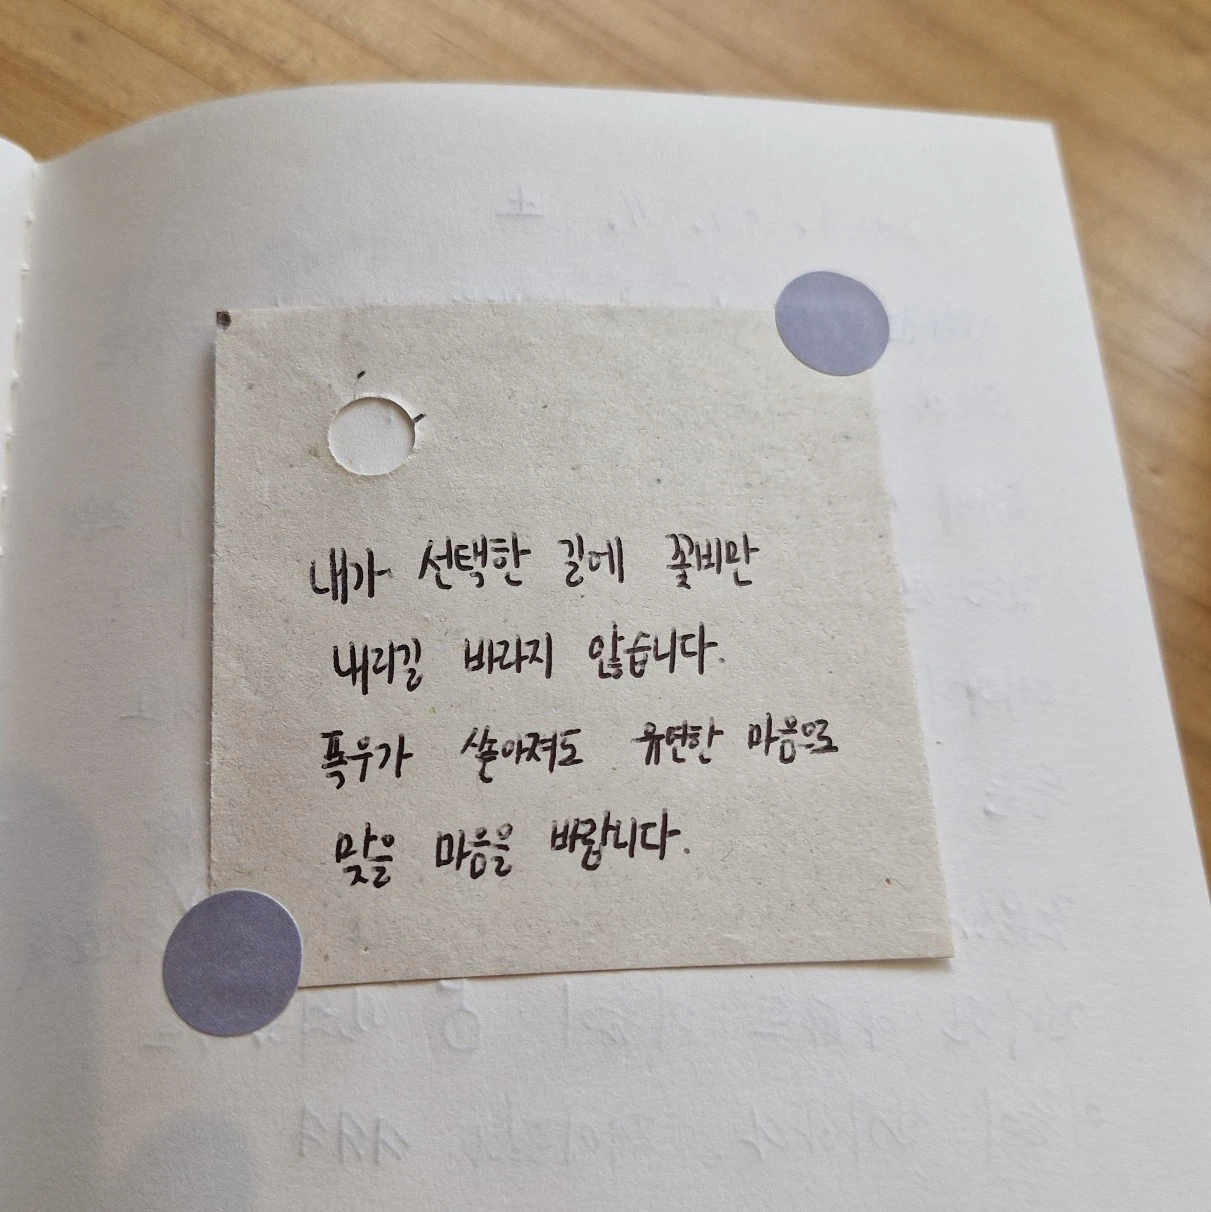 내가 선택한 길에 꽃비만
내리길 바라지 않습니다.
폭우가 쏟아져도 유연한 마음으로
맞을 마음을 바랍니다.